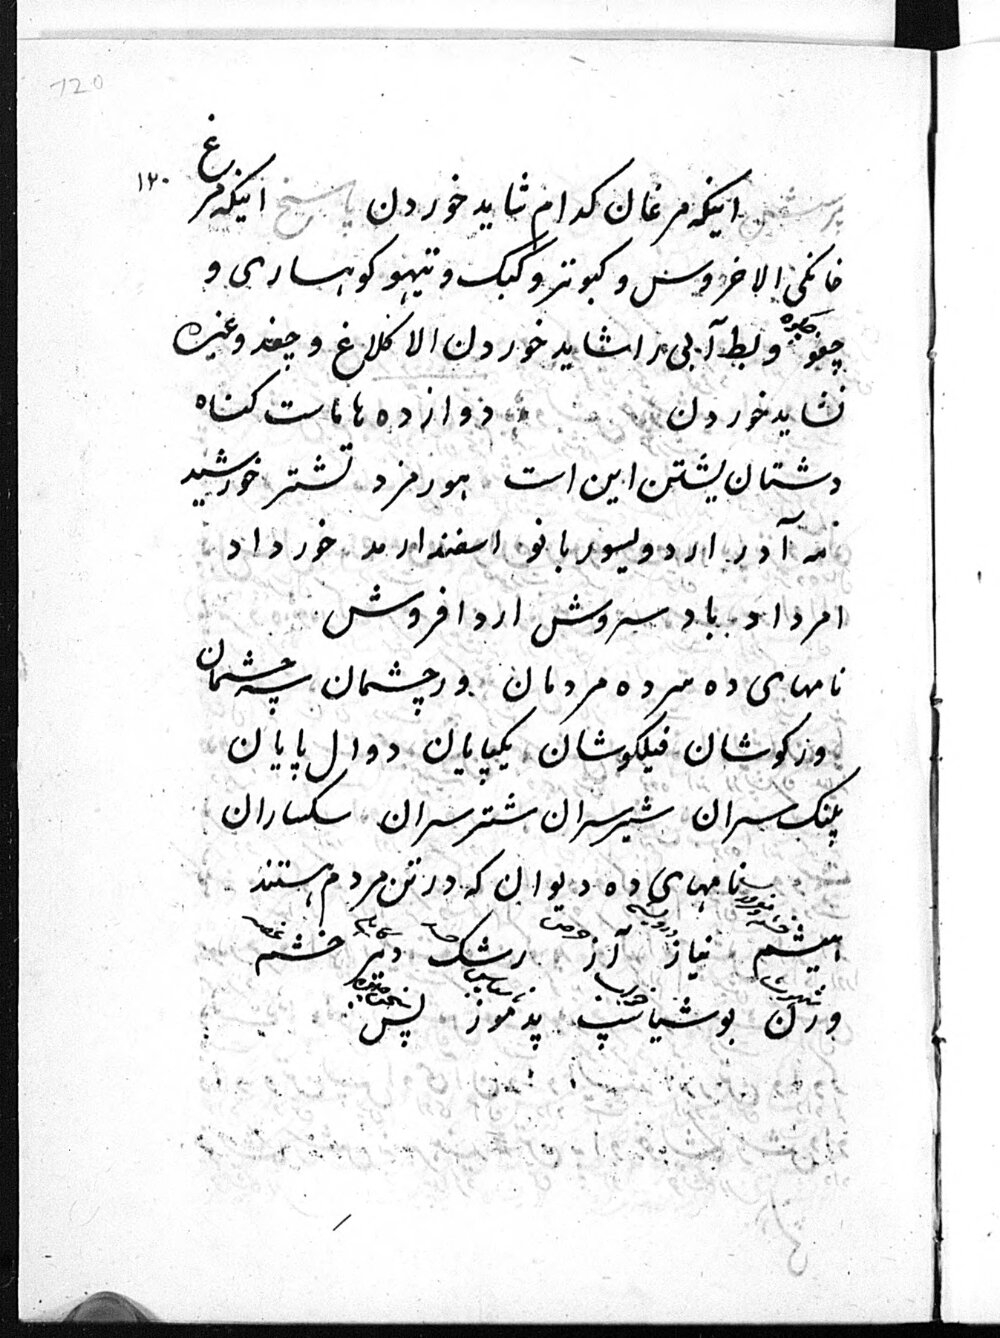 120
۱۲۰
پرسشن اینکه مرغان کدام شاید خوردن پاسخ اینکه مرغ
خانگی الا خروس و کبوتر و کبک و تیهو کوهساری و
چغو و بط آبی را شاید خوردن الا کلاغ و چغد و غیره
نشاید خوردن دوازده هاماست کناه
دشتان یشتن این است هورمزد تشتر خورشید
مه آدر اردویسور بانو اسفندارمد خورداد
امرداد باد سروش اردافروش
نامهای ده سرده مردمان ورچشمان سه چشمان
ورکوشان فیلکوشان یکپایان دوال پایان
پلنک سران شیرسران شترسران سکساران
نامهای ده دیوان که در تن مردم هستند
هیشم نیاز آز رشک دیر خشم
ورن بوشیاسپ پدموز پس